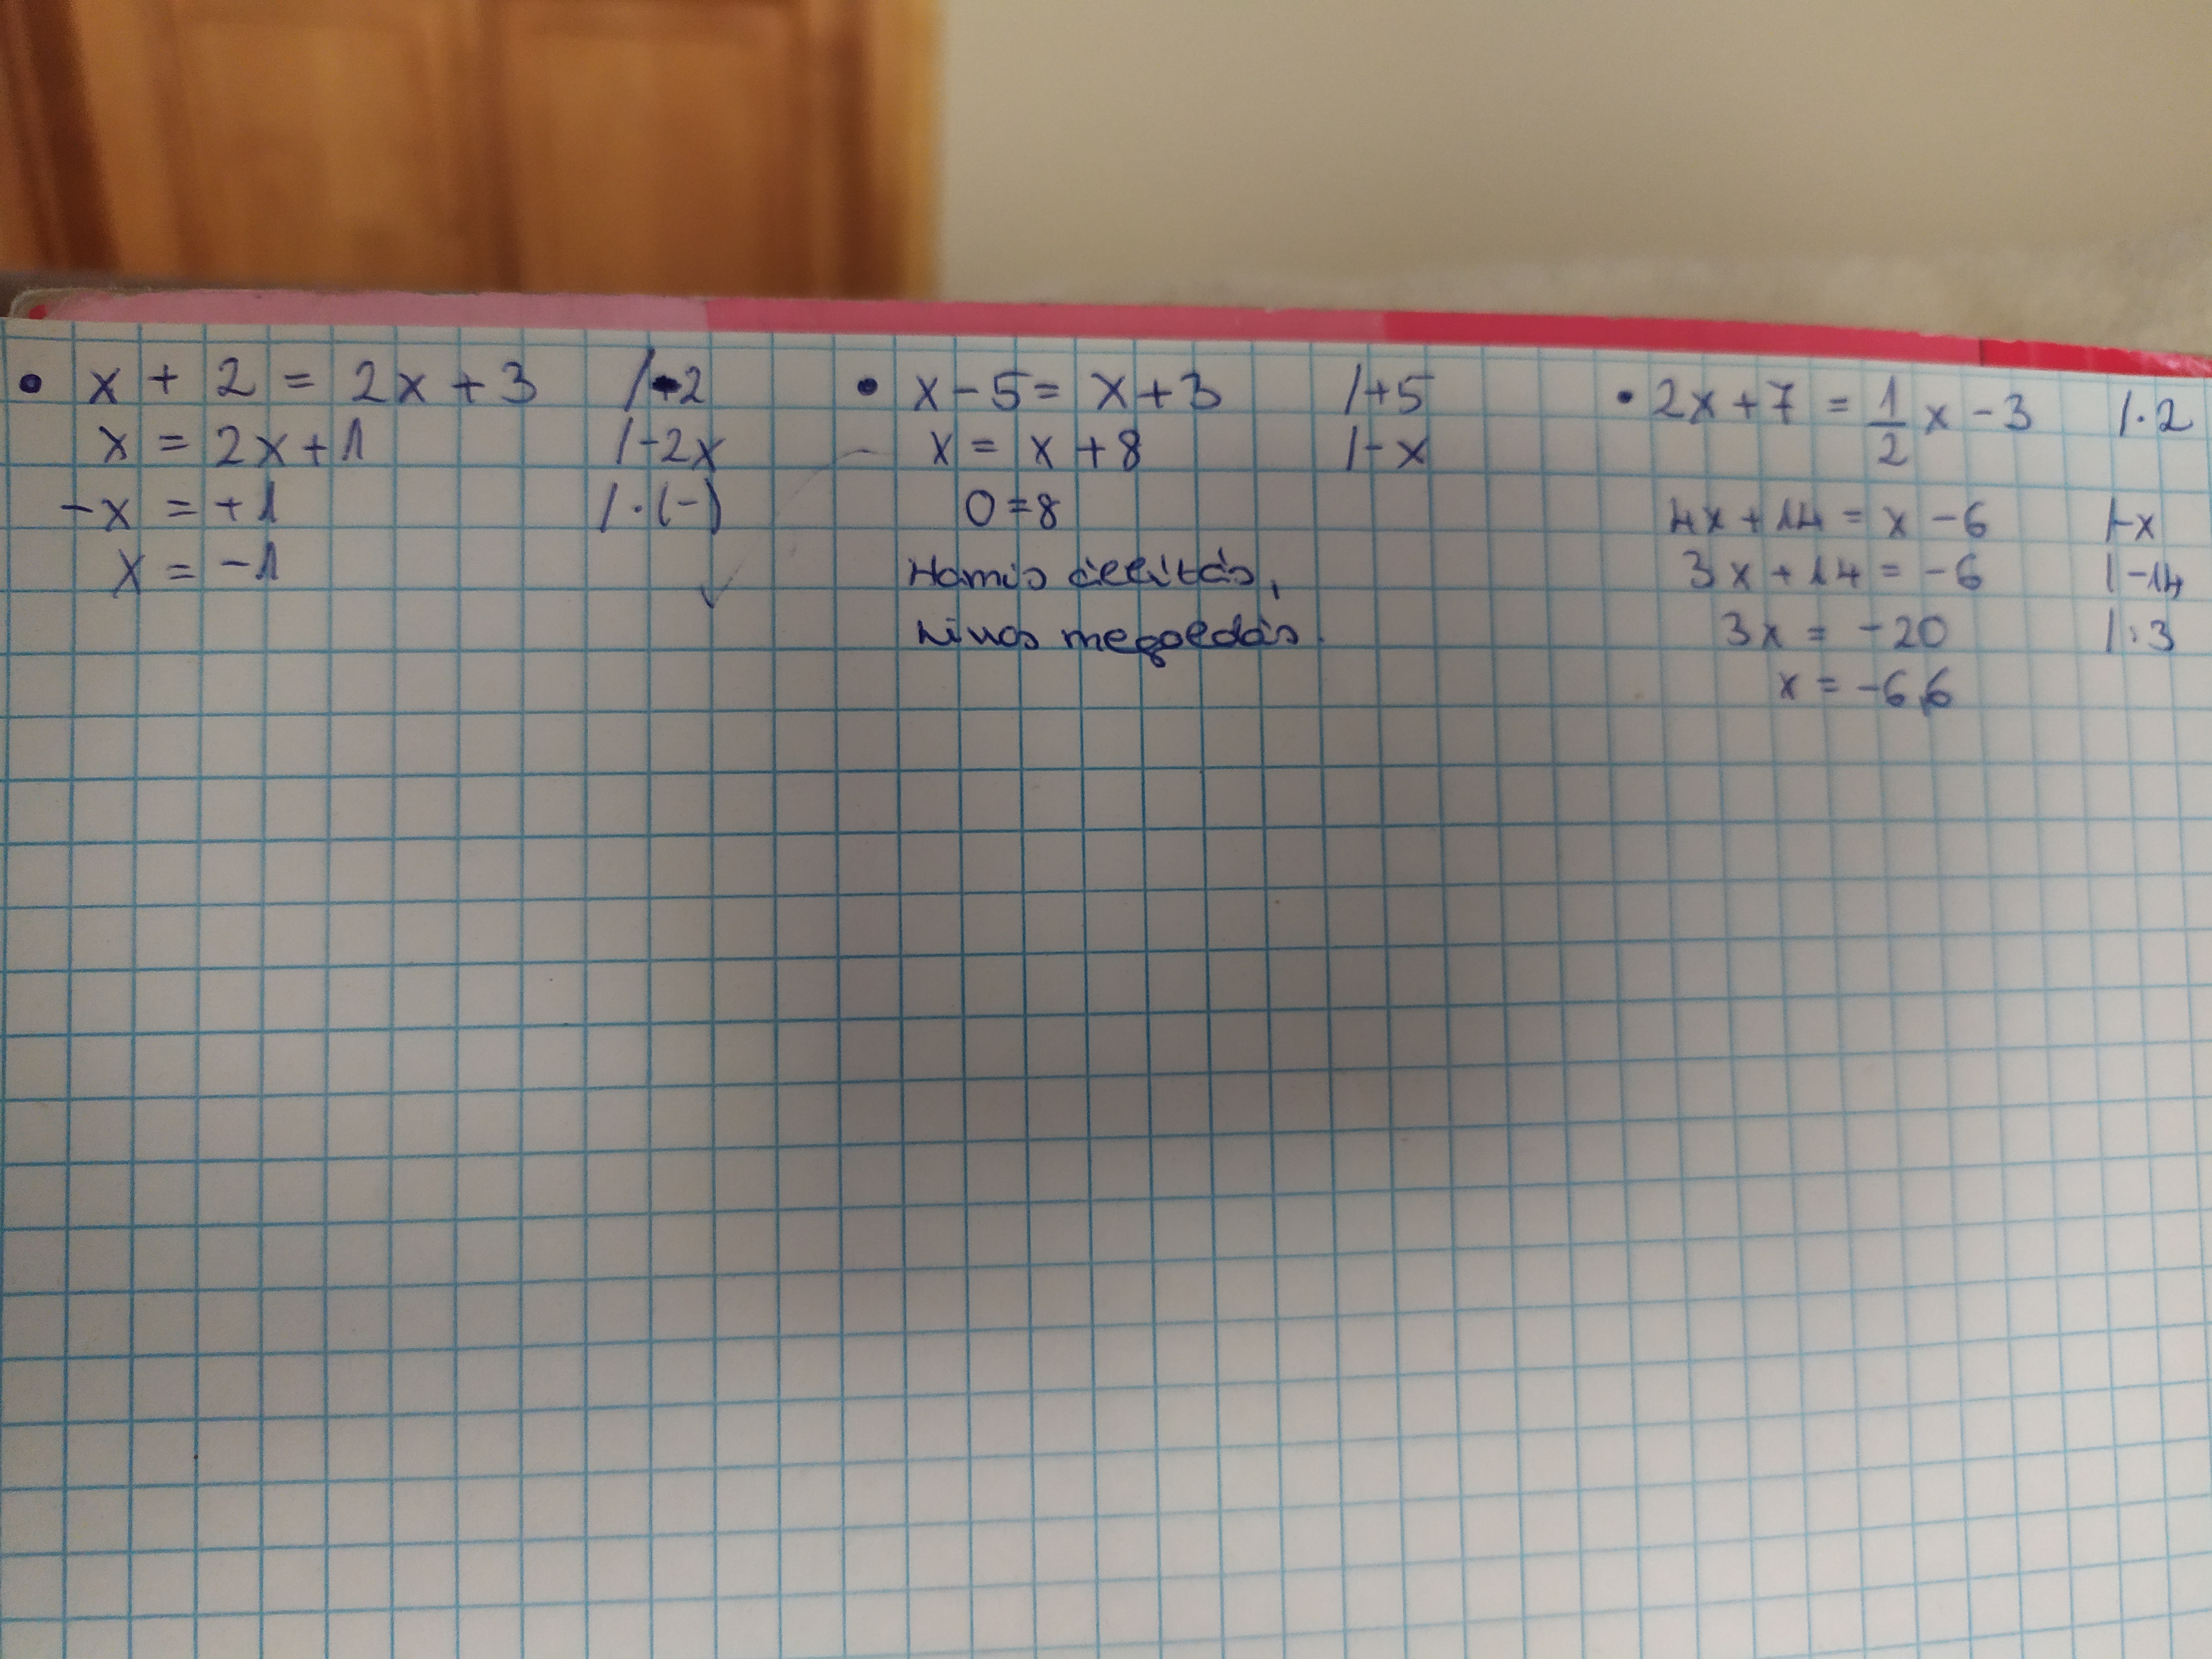 • x + 2 = 2x + 3 /-2
x = 2x + 1 /-2x
-x = +1 /·(-)
x = -1
• x - 5 = x + 3 /+5
x = x + 8 /-x
0 = 8
Hamis állítás,
nincs megoldás.
• 2x + 7 = 1/2 x - 3 /·2
4x + 14 = x - 6 /-x
3x + 14 = -6 /-14
3x = -20 /:3
x = -6,6